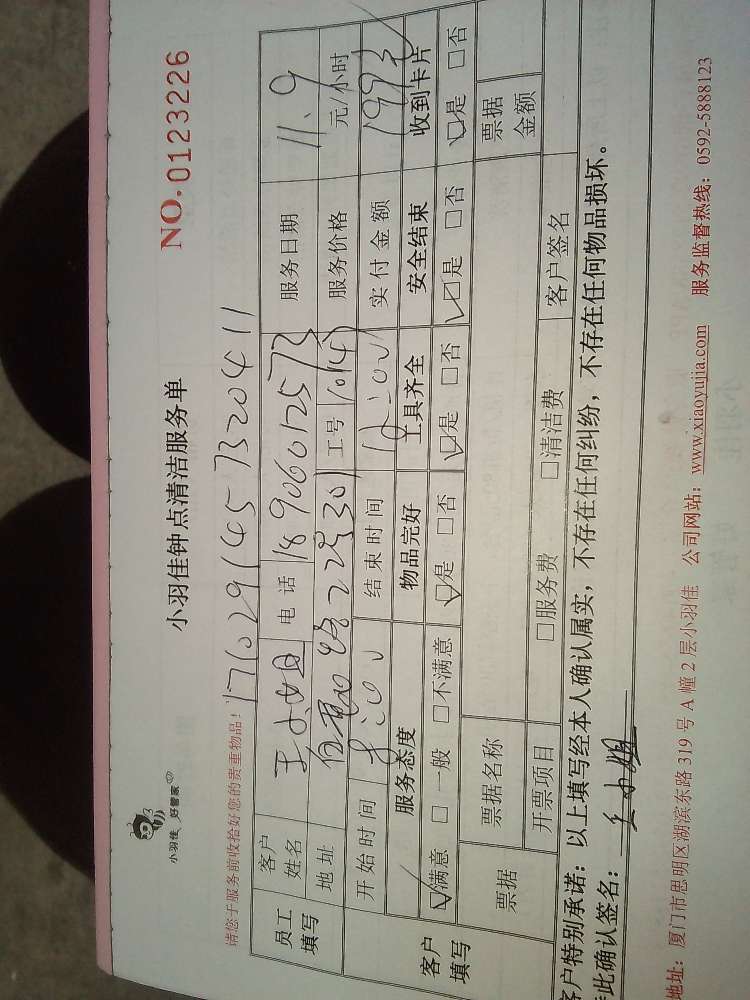 小羽佳 好管家
小羽佳钟点清洁服务单
NO.0123226
请您于服务前收拾好您的贵重物品!
170291457320411
员工填写
客户姓名 王小姐 电话 18906012573 服务日期 11.9
地址 22号301 工号 服务价格 元/小时
开始时间 8:00 结束时间 12:00 实付金额
客户填写
服务态度 物品完好 工具齐全 安全结束 收到卡片
☑满意 □一般 □不满意 ☑是 □否 ☑是 □否 ☑是 □否 ☑是 □否
票据 票据名称 票据金额
开票项目 □服务费 □清洁费 客户签名
客户特别承诺:以上填写经本人确认属实,不存在任何纠纷,不存在任何物品损坏。
此确认签名:王小姐
地址:厦门市思明区湖滨东路319号A幢2层小羽佳 公司网站:www.xiaoyujia.com 服务监督热线:0592-5888123